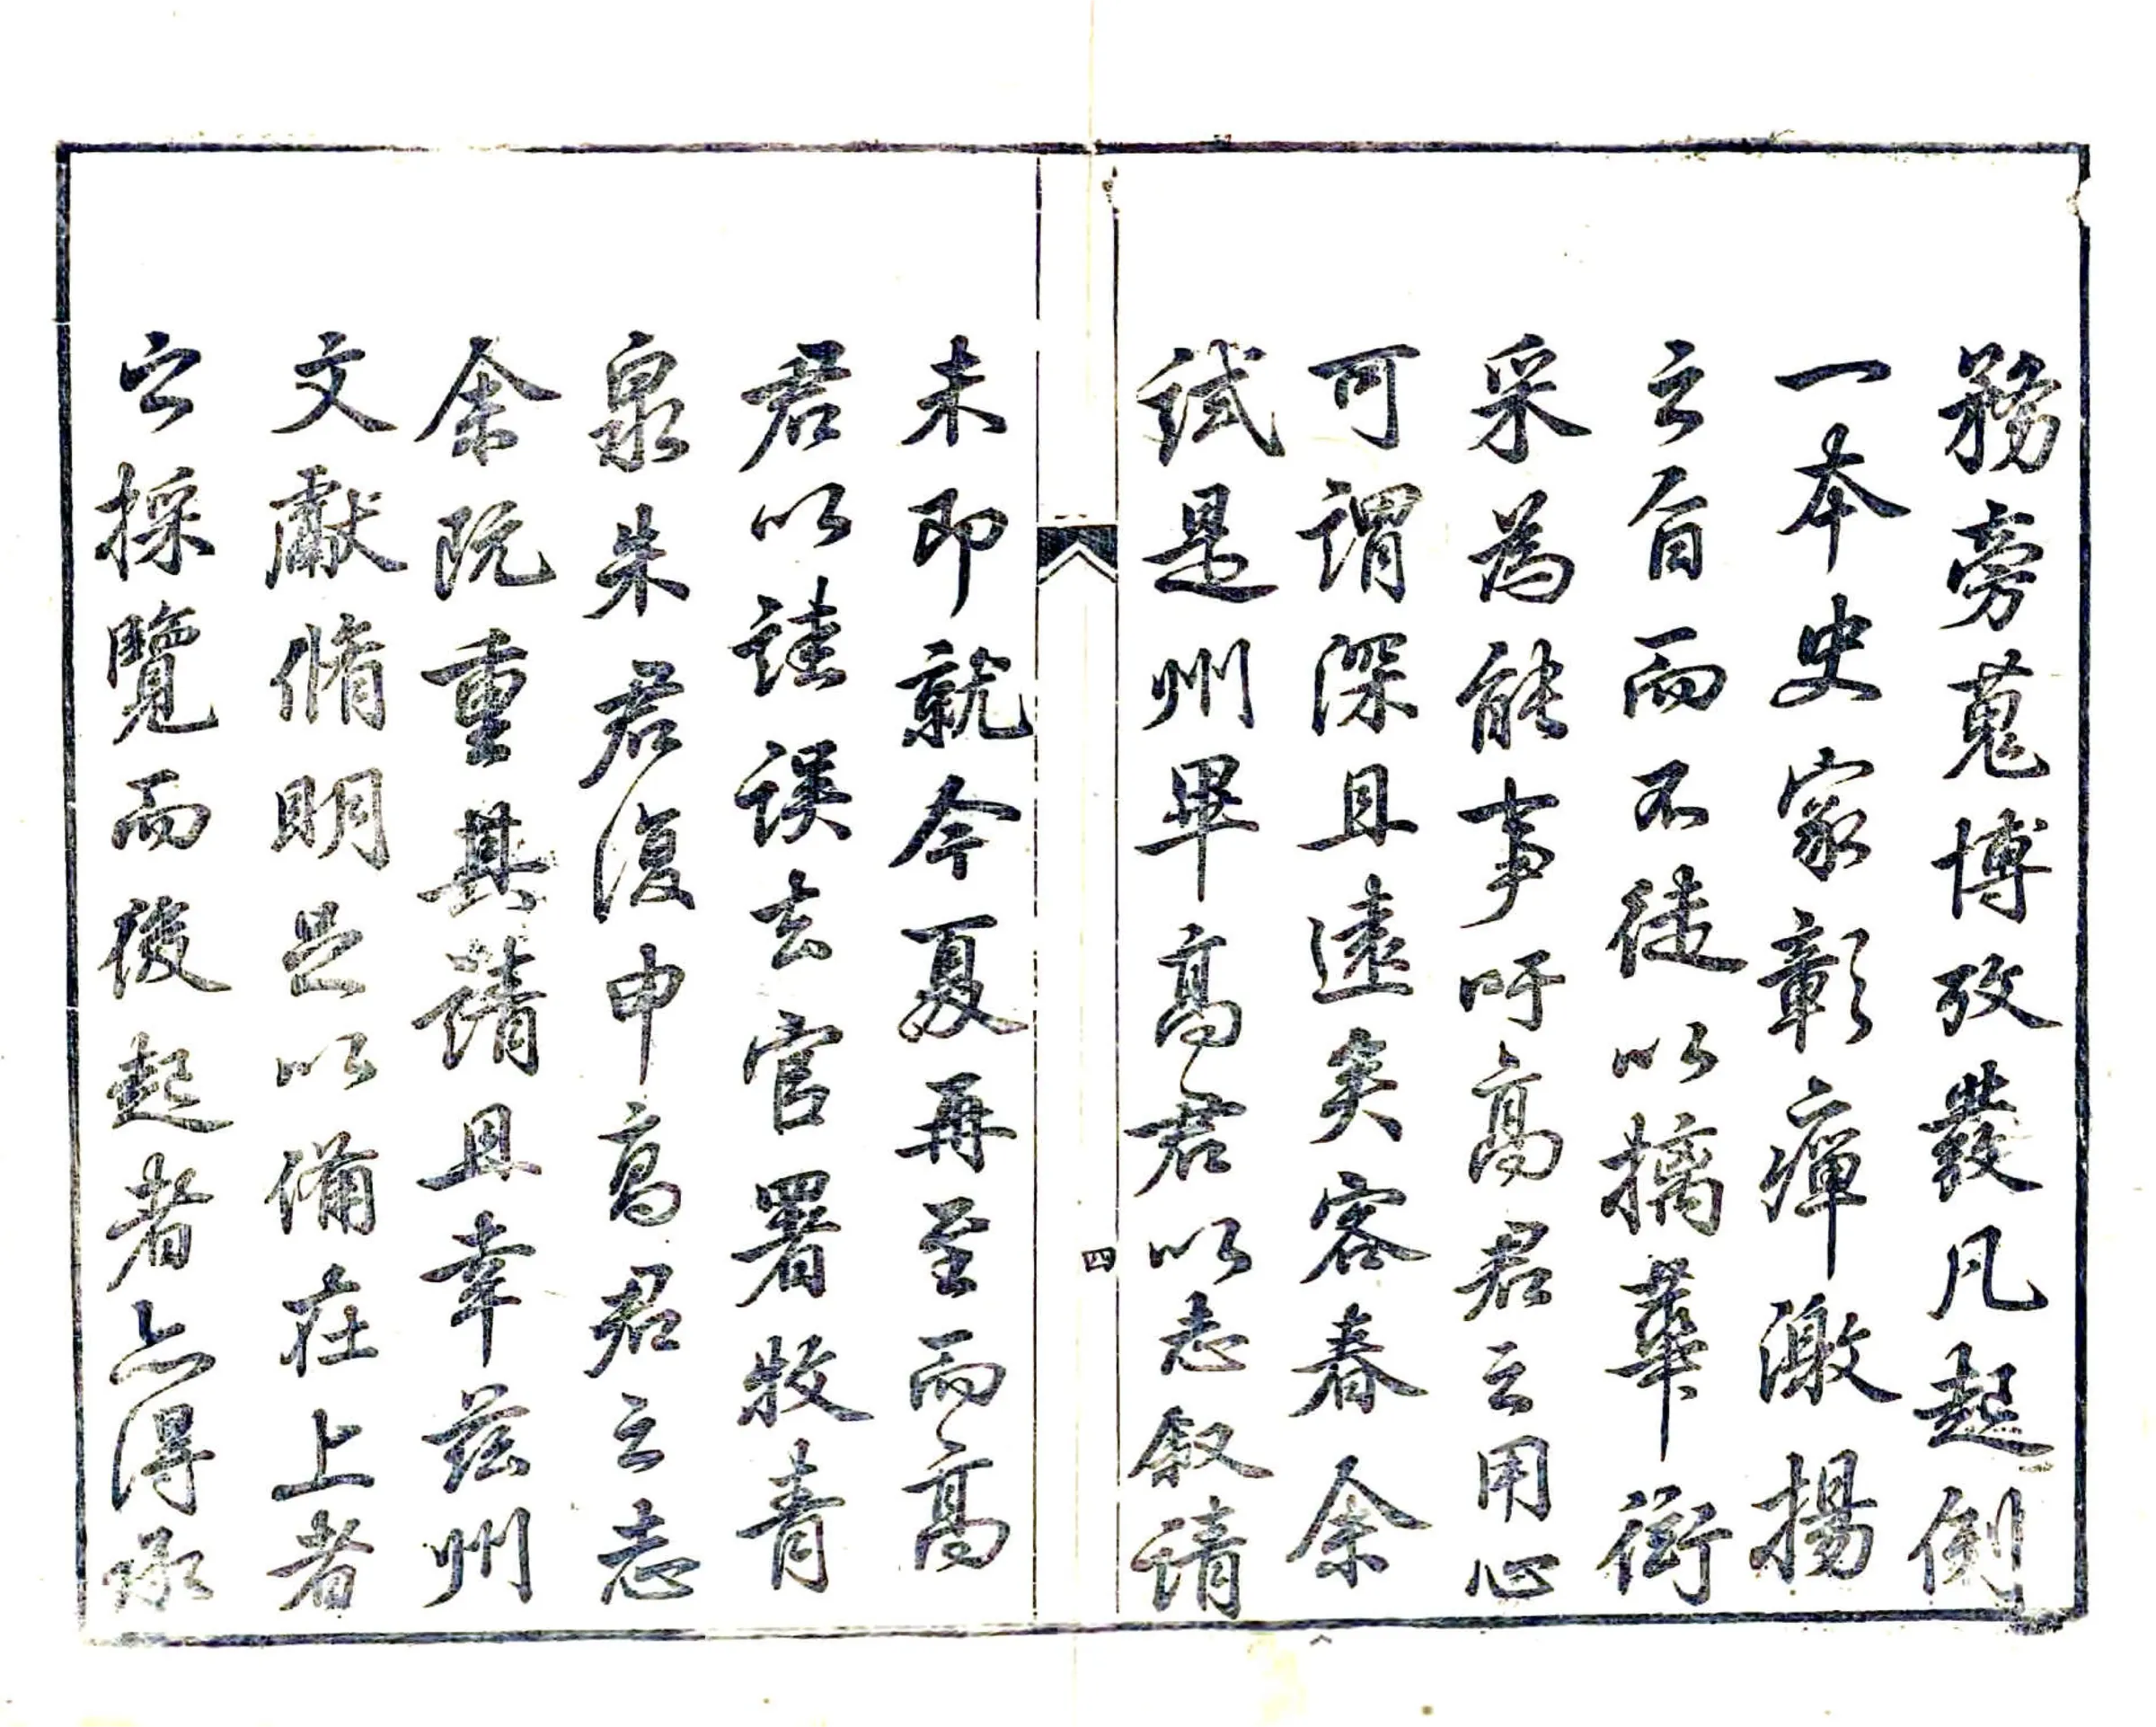 務旁蒐博攷發凡起例
一本史家彰癉激揚
之旨而不徒以摛華衒
采為能事吁高君之用心
可謂深且遠矣客春余
試是州畢高君以志叙請
四
未即就今夏再至而高
君以詿誤去官署牧青
泉朱君復申高君之志
余既重其請且幸茲州
文獻脩明足以備在上者
之採覽而後起者亦得承